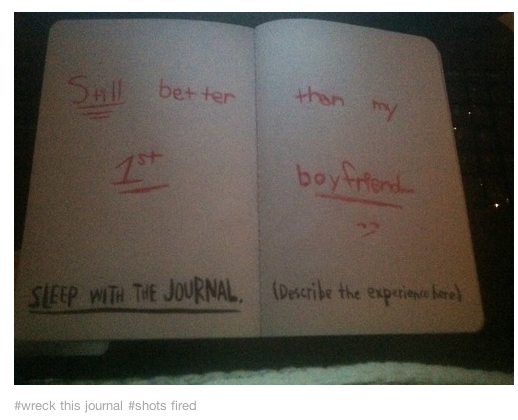 Still better than my
1st boyfriend
SLEEP WITH THE JOURNAL. (Describe the experience here)
#wreck this journal #shots fired